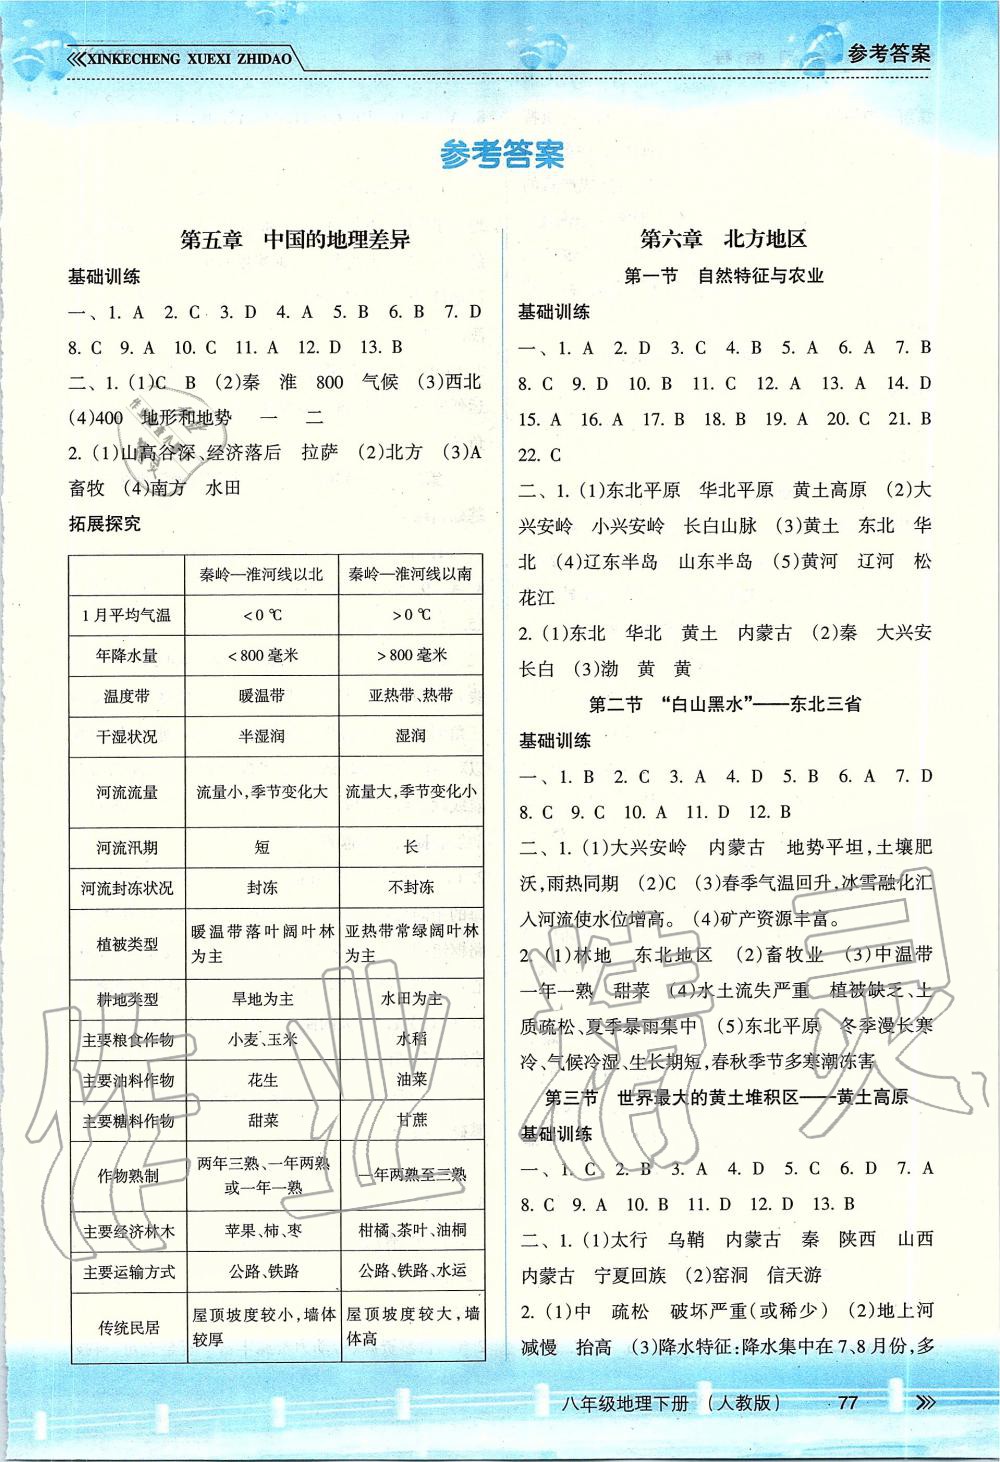 XINKECHENG XUEXI ZHIDAO
参考答案
参考答案
第五章 中国的地理差异
基础训练
一、1. A 2. C 3. D 4. A 5. B 6. B 7. D
8. C 9. A 10. C 11. A 12. D 13. B
二、1. (1)C B (2)秦 淮 800 气候 (3)西北
(4)400 地形和地势 一 二
2. (1)山高谷深、经济落后 拉萨 (2)北方 (3)A
畜牧 (4)南方 水田
拓展探究
秦岭—淮河线以北 秦岭—淮河线以南
1月平均气温 <0 ℃ >0 ℃
年降水量 <800毫米 >800毫米
温度带 暖温带 亚热带、热带
干湿状况 半湿润 湿润
河流流量 流量小,季节变化大 流量大,季节变化小
河流汛期 短 长
河流封冻状况 封冻 不封冻
植被类型 暖温带落叶阔叶林为主 亚热带常绿阔叶林为主
耕地类型 旱地为主 水田为主
主要粮食作物 小麦、玉米 水稻
主要油料作物 花生 油菜
主要糖料作物 甜菜 甘蔗
作物熟制 两年三熟、一年两熟或一年一熟 一年两熟至三熟
主要经济林木 苹果、柿、枣 柑橘、茶叶、油桐
主要运输方式 公路、铁路 公路、铁路、水运
传统民居 屋顶坡度较小,墙体较厚 屋顶坡度较大,墙体高
第六章 北方地区
第一节 自然特征与农业
基础训练
一、1. A 2. D 3. C 4. B 5. A 6. A 7. B
8. C 9. D 10. B 11. C 12. A 13. A 14. D
15. A 16. A 17. B 18. B 19. A 20. C 21. B
22. C
二、1. (1)东北平原 华北平原 黄土高原 (2)大
兴安岭 小兴安岭 长白山脉 (3)黄土 东北 华
北 (4)辽东半岛 山东半岛 (5)黄河 辽河 松
花江
2. (1)东北 华北 黄土 内蒙古 (2)秦 大兴安
长白 (3)渤 黄 黄
第二节 “白山黑水”——东北三省
基础训练
一、1. B 2. C 3. A 4. C 5. B 6. A 7. D
8. C 9. C 10. A 11. D 12. B
二、1. (1)大兴安岭 内蒙古 地势平坦,土壤肥
沃,雨热同期 (2)C (3)春季气温回升,冰雪融化汇
入河流使水位增高。 (4)矿产资源丰富。
2. (1)林地 东北地区 (2)畜牧业 (3)中温带
一年一熟 甜菜 (4)水土流失严重 植被缺乏、土
质疏松、夏季暴雨集中 (5)东北平原 冬季漫长寒
冷、气候冷湿、生长期短,春秋季节多寒潮冻害
第三节 世界最大的黄土堆积区——黄土高原
基础训练
一、1. C 2. B 3. A 4. D 5. C 6. D 7. A
8. C 9. A 10. B 11. D 12. D 13. B
二、1. (1)太行 乌鞘 内蒙古 秦 陕西 山西
内蒙古 宁夏回族 (2)窑洞 信天游
2. (1)中 疏松 破坏严重(或稀少) (2)地上河
减慢 抬高 (3)降水特征:降水集中在7、8月份,多
八年级地理下册 (人教版) 77
作业精灵